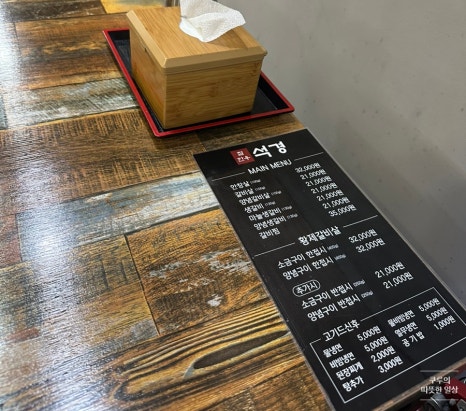 석경
MAIN MENU
안창살 32,000원
갈비살 21,000원
양념갈비살 21,000원
생갈비 21,000원
마늘생갈비 21,000원
양념생갈비 21,000원
갈비찜 35,000원
황제갈비살
소금구이 한접시 32,000원
양념구이 한접시 32,000원
추가시
소금구이 반접시 21,000원
양념구이 반접시 21,000원
고기드신후
물냉면 5,000원 물비빔냉면 5,000원
비빔냉면 5,000원 열무냉면 5,000원
된장찌개 2,000원 공기밥 1,000원
탕추가 3,000원
쿠루의
따뜻한 일상